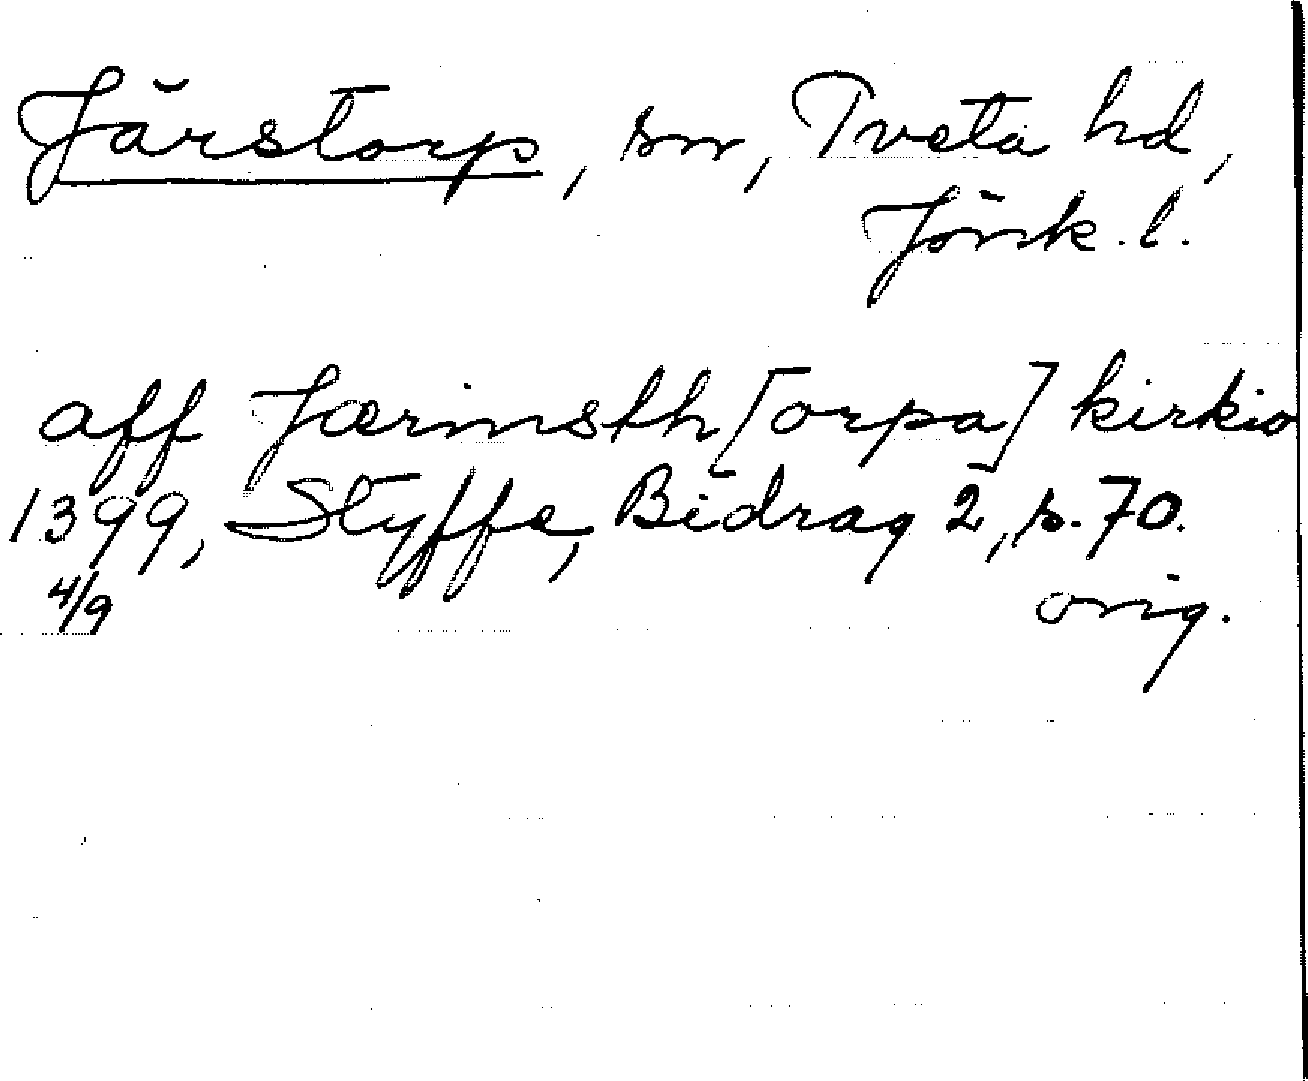 Järstorp, sn, Tveta hd,
Jönk. l.
aff Jærinsth[orpa] kirkio
1399, Styffe, Bidrag 2, p. 70.
4/9 orig.